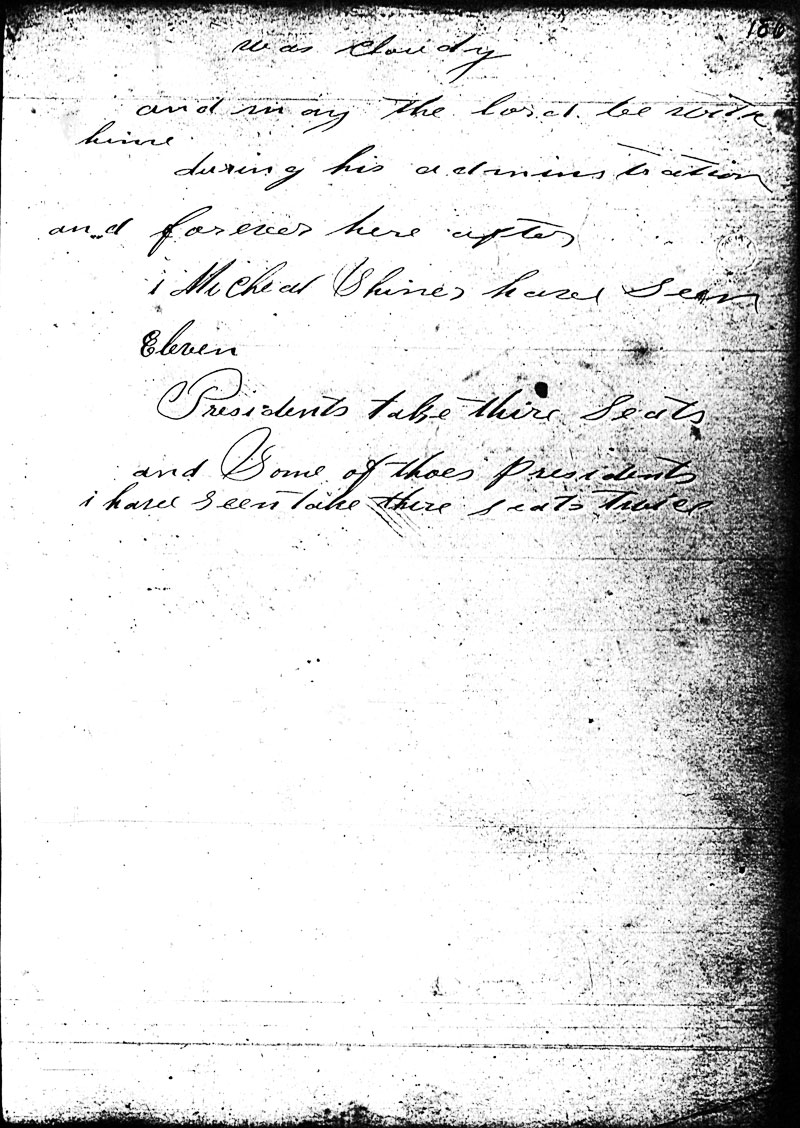 was cloudy
and may the lord be with
hime
during his adminstration
and forever here after
i Micheal Shiner have Seen
Eleven
Presidents take thire Seats
and Some of thoes Presidents
i have Seen take thire seats twice